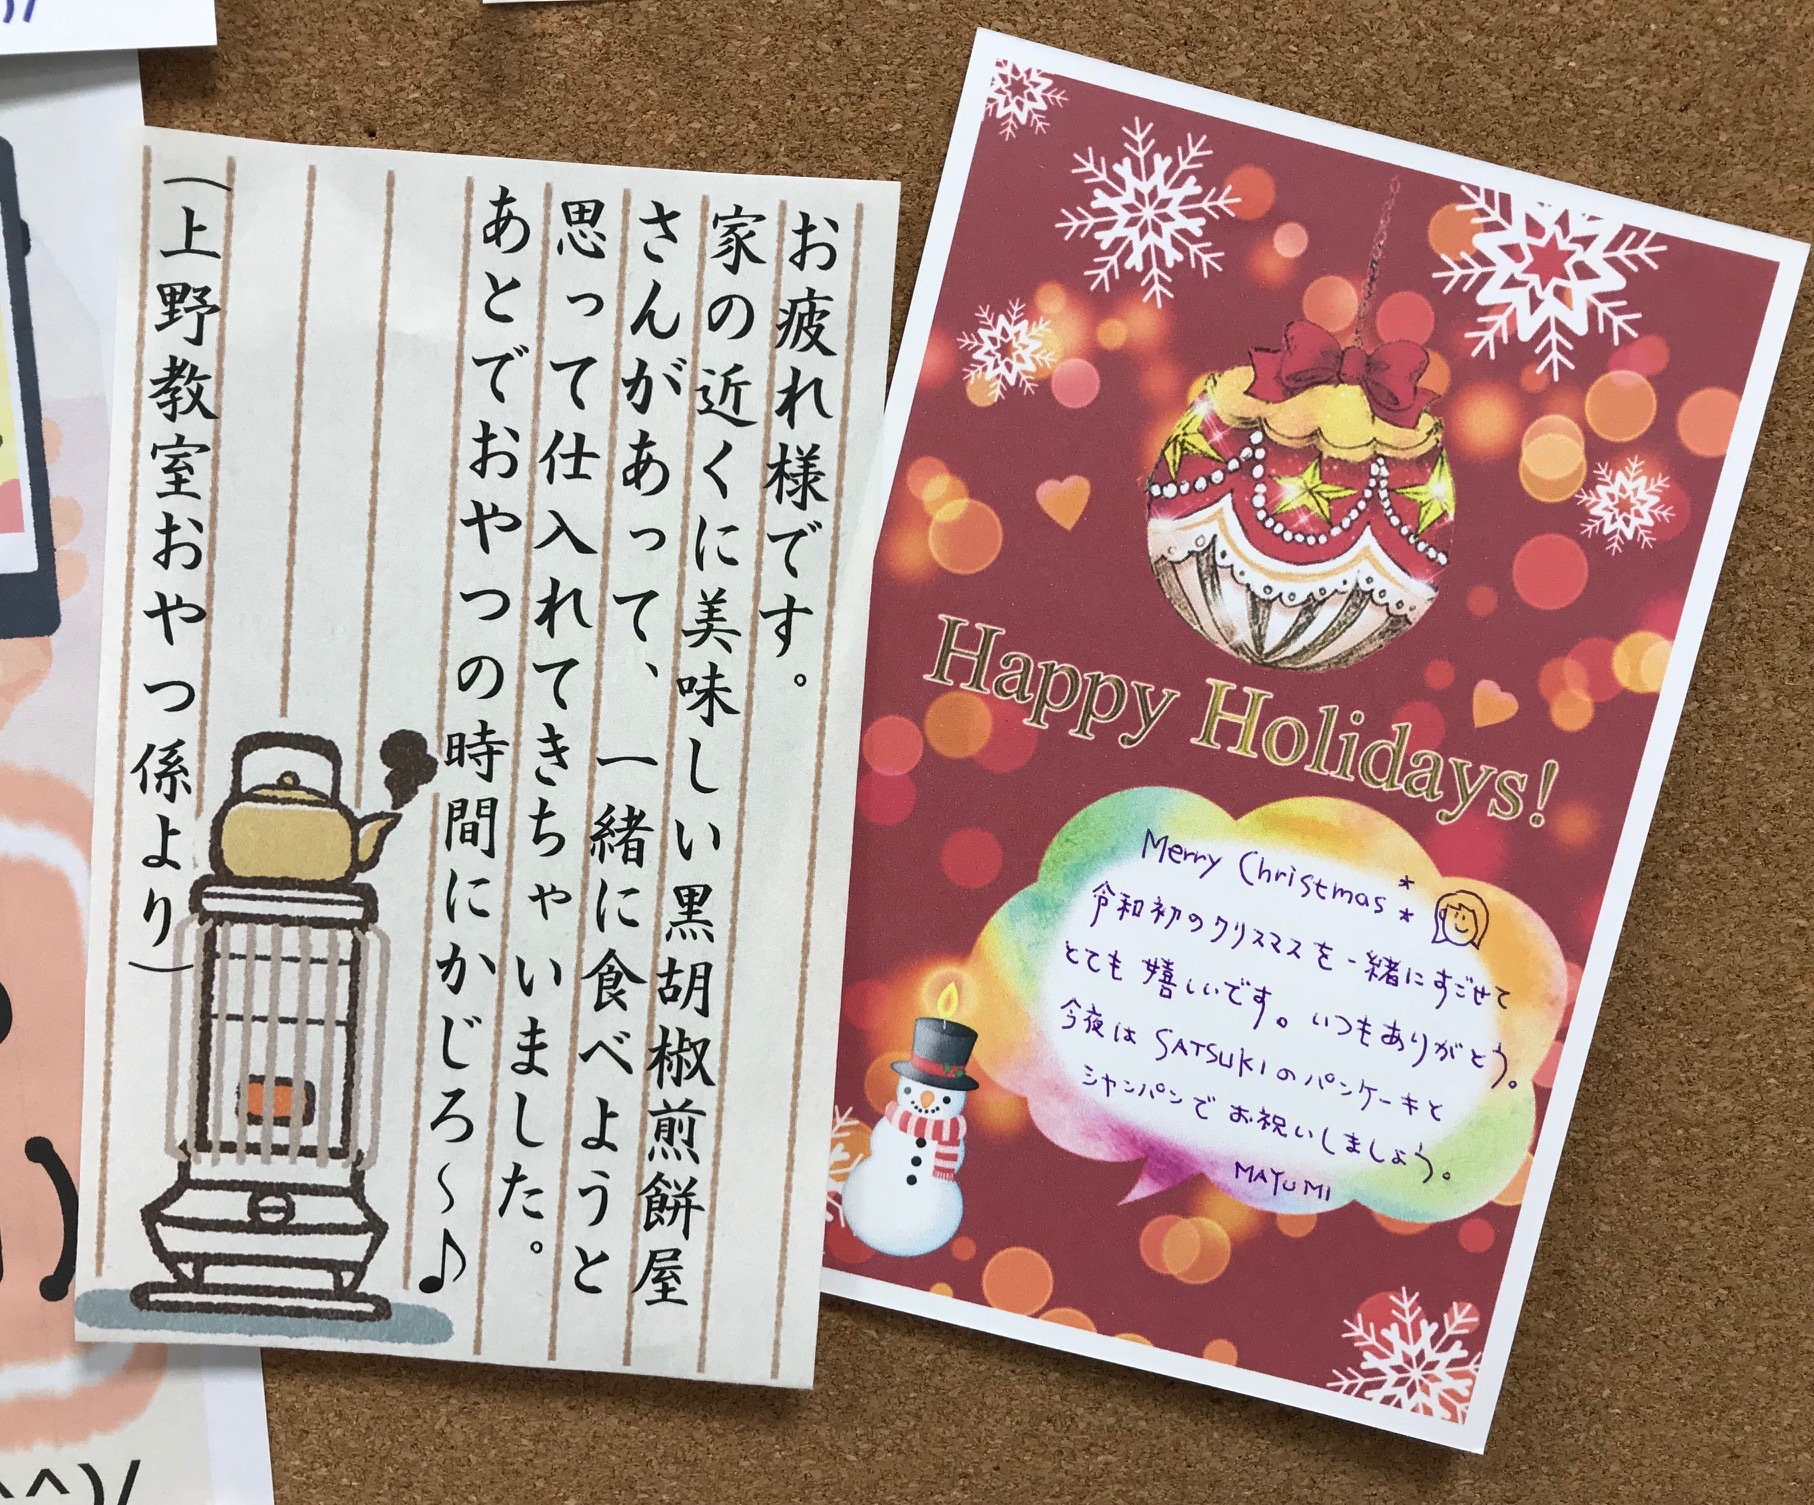 お疲れ様です。
家の近くに美味しい黒胡椒煎餅屋
さんがあって、一緒に食べようと
思って仕入れてきちゃいました。
あとでおやつの時間にかじろ～♪
（上野教室おやつ係より）
Happy Holidays!
Merry Christmas**
令和初のクリスマスを一緒にすごせて
とても嬉しいです。いつもありがとう。
今夜はSATSUKIのパンケーキと
シャンパンでお祝いしましょう。
MAYUMI
^^)/